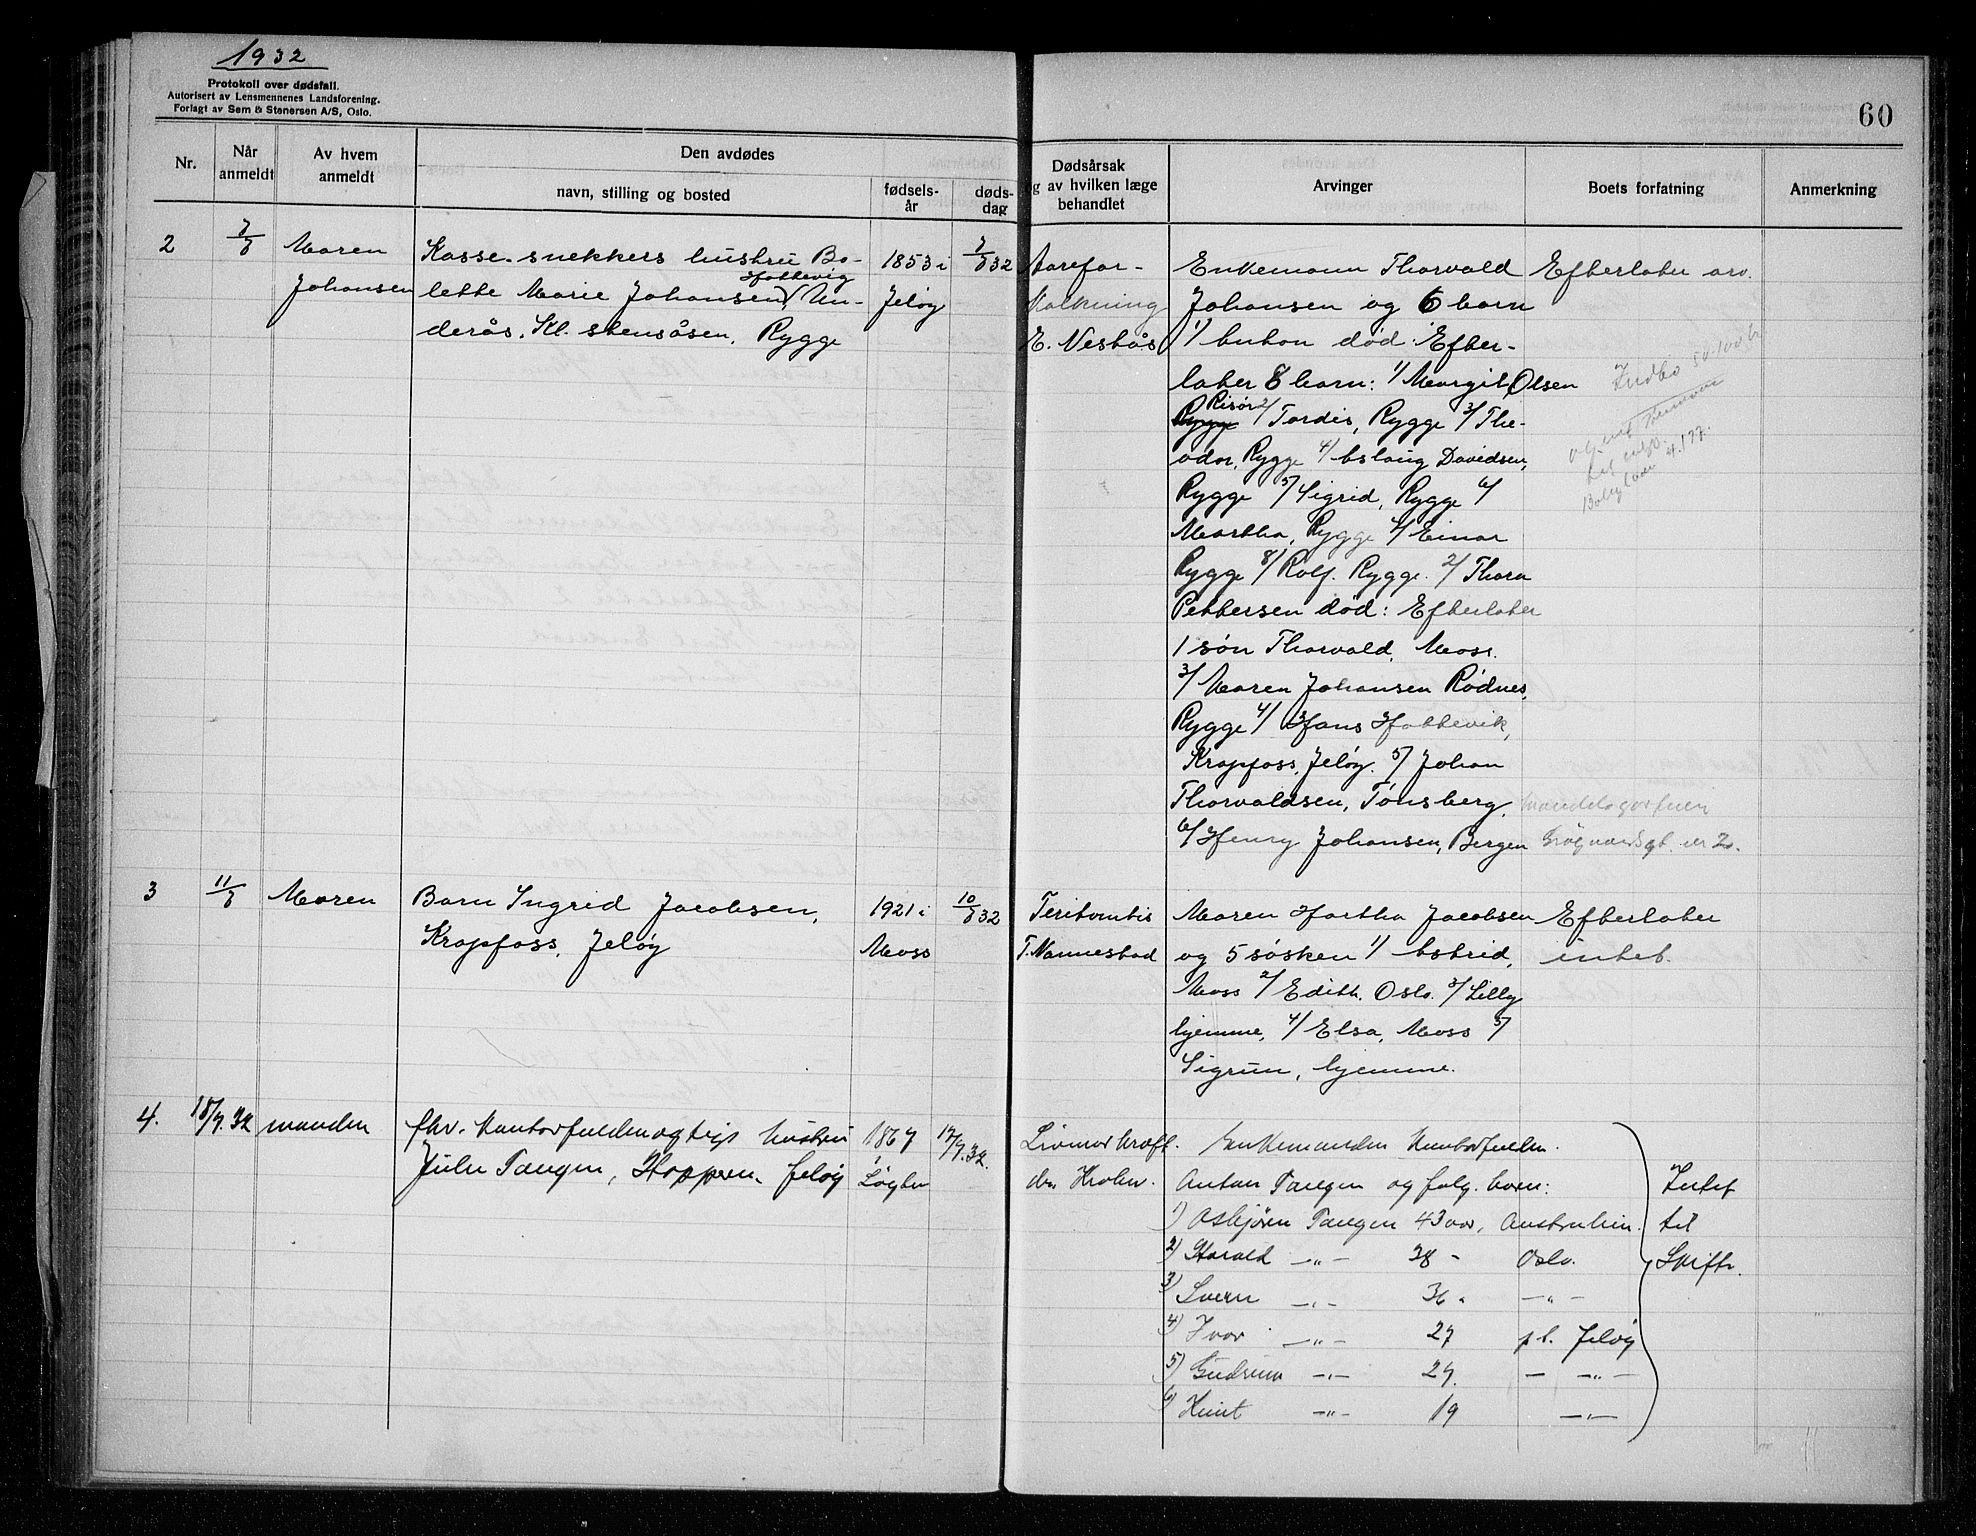 1932
Protokoll over dødsfall.
Autorisert av Lensmennenes Landsforening.
Forlagt av Sem & Stenersen A/S, Oslo.
60
Nr.
Når
anmeldt
Av hvem
anmeldt
Den avdødes
navn, stilling og bosted
fødsels-
år
døds-
dag
Dødsårsak
og av hvilken læge
behandlet
Arvinger
Boets forfatning
Anmerkning
2
Moren
Johansen
Kasse-snekkers hustru Bo-
Hottevig
lette Marie Johansen
derås. Kl. stensåsen, Rygge
1853 i
Jeløy
Aarefor-
kalkning
E. Nestås
Enkemann Thorvald
Johansen og 6 barn
1/ død: Efter-
later 8 barn: 1/ Margit Olsen
Risør
Rygge 2/ Tordis, Rygge 3/ The-
odor, Rygge 4/ Aslaug Davidsen,
Rygge 5/ Sigrid, Rygge 6/
Martha, Rygge 7/ Einar
Rygge 8/ Rolf. Rygge. 2/ Thora
Pettersen død: Efterlater
1 søn Thorvald, Moss.
3/ Maren Johansen Rødnes,
Rygge 4/ Hans Hottevik,
Krapfoss, Jeløy. 5/ Johan
Thorvaldsen, Tønsberg.
6/ Henry Johansen, Bergen
Efterlater arv.
Indbo 50-100 kr
3
11/
Moren
Barn Ingrid Jacobsen,
Krapfoss, Jeløy
1921 i
Moss
10/ 32
T. Nannestad
Moren Hartha Jacobsen
og 5 søsken 1/ Astrid,
Moss 2/ Edith. Oslo. 3/ Lilly
hjemme, 4/ Elsa, Moss 5/
Sigrun, hjemme.
Efterlater
intet.
4.
18/7.32
manden
fhv. kontorfuldmægtigs hustru
Julie Tangen, Hoppern, Jeløy
1867
i Løyten
17/7.32.
Livmorkræft.
dr. Krohn.
Enkemanden kontorfuldm.
Anton Tangen og følg. barn:
1) Asbjørn Tangen 43 aar, Australien.
2) Harald —„— 38 - Oslo.
3) Sverre —„— 36 „ —„—
4) Ivar —„— 27 pl. Jeløy
5) Gudrun —„— 27. — —„—
6) Knut —„— 19 —„—
Intet
til
Skifte.